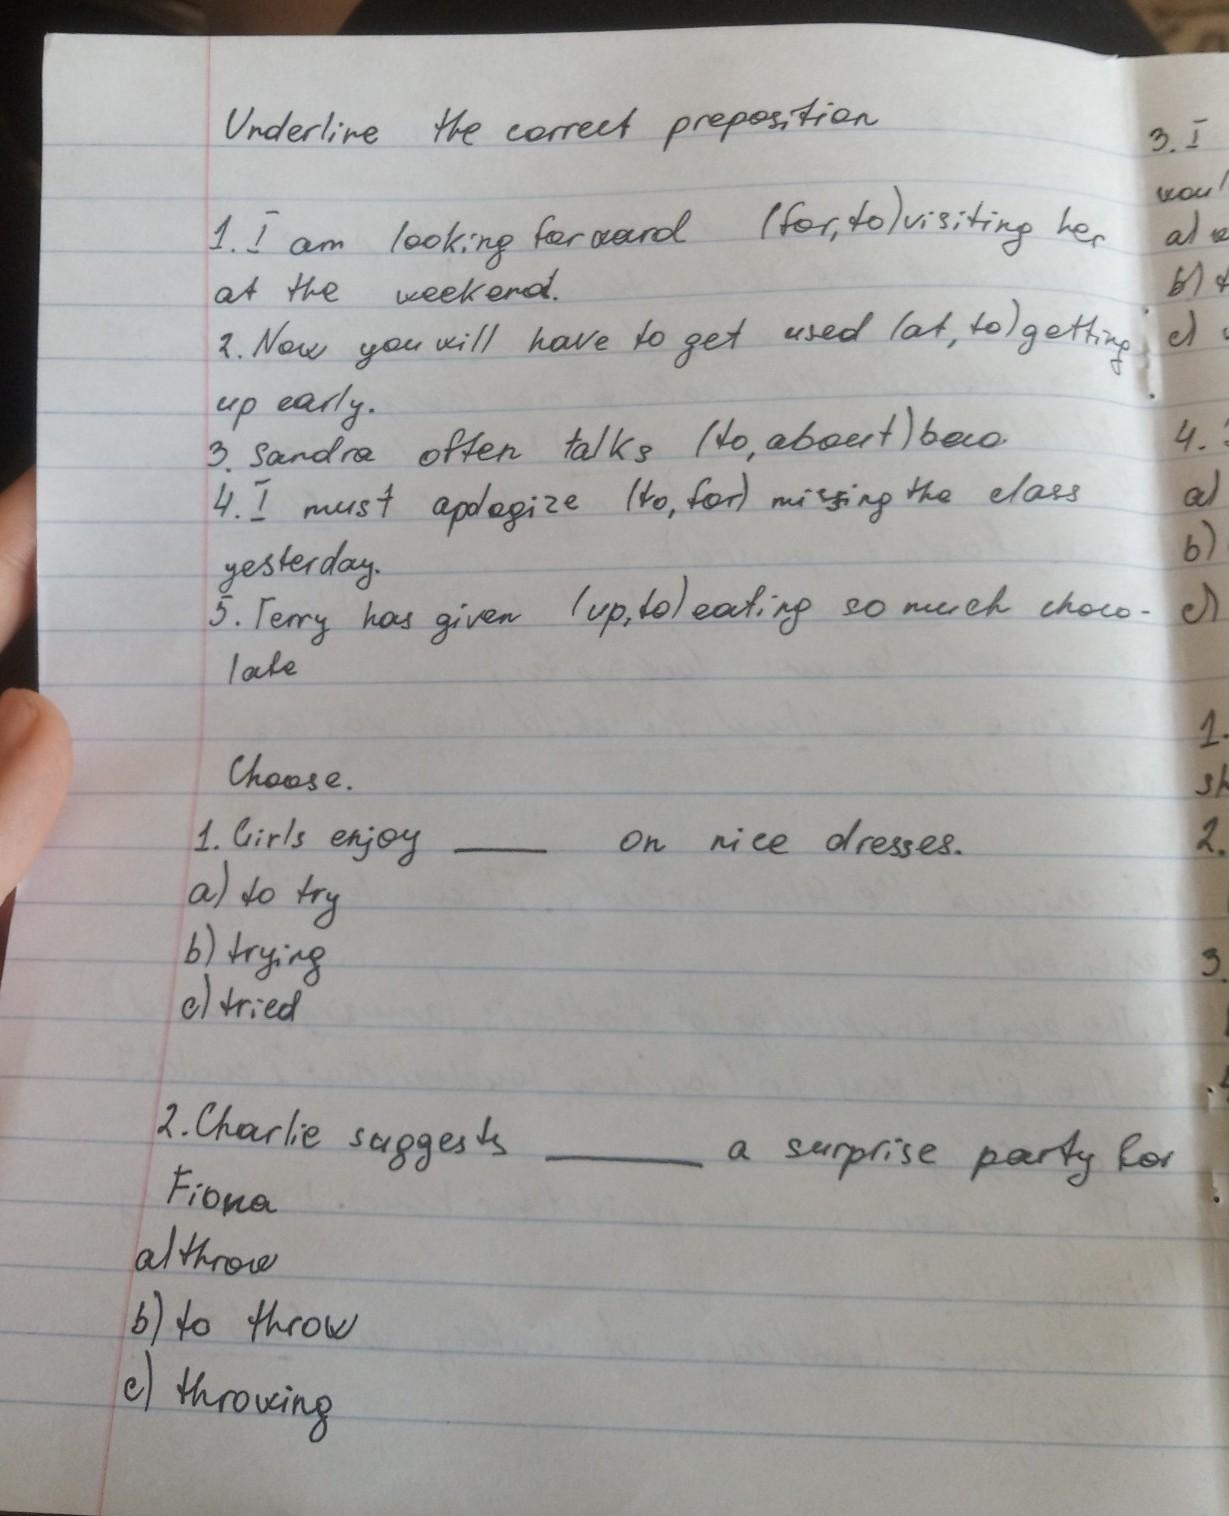 Underline the correct preposition
1. I am looking forward (for, to) visiting her
at the weekend.
2. Now you will have to get used (at, to) getting
up early.
3. Sandra often talks (to, about)
4. I must apologize (to, for) missing the class
yesterday.
5. Terry has given (up, to) eating so much choco-
late
Choose.
1. Girls enjoy ____ on nice dresses.
a) to try
b) trying
c) tried
2. Charlie suggests ____ a surprise party for
Fiona
a) throw
b) to throw
c) throwing
3. I
a)
b)
c)
4.
a)
b)
c)
1.
2.
3.